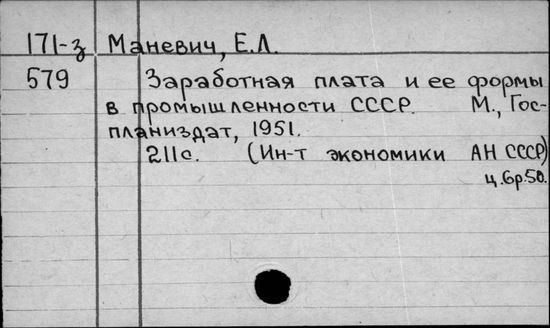 171-з Маневич, Е.Л.
579 Заработная плата и ее формы
в промышленности СССР. М., Гос-
планиздат, 1951.
211с. (Ин-т экономики АН СССР)
ц.6р.50.